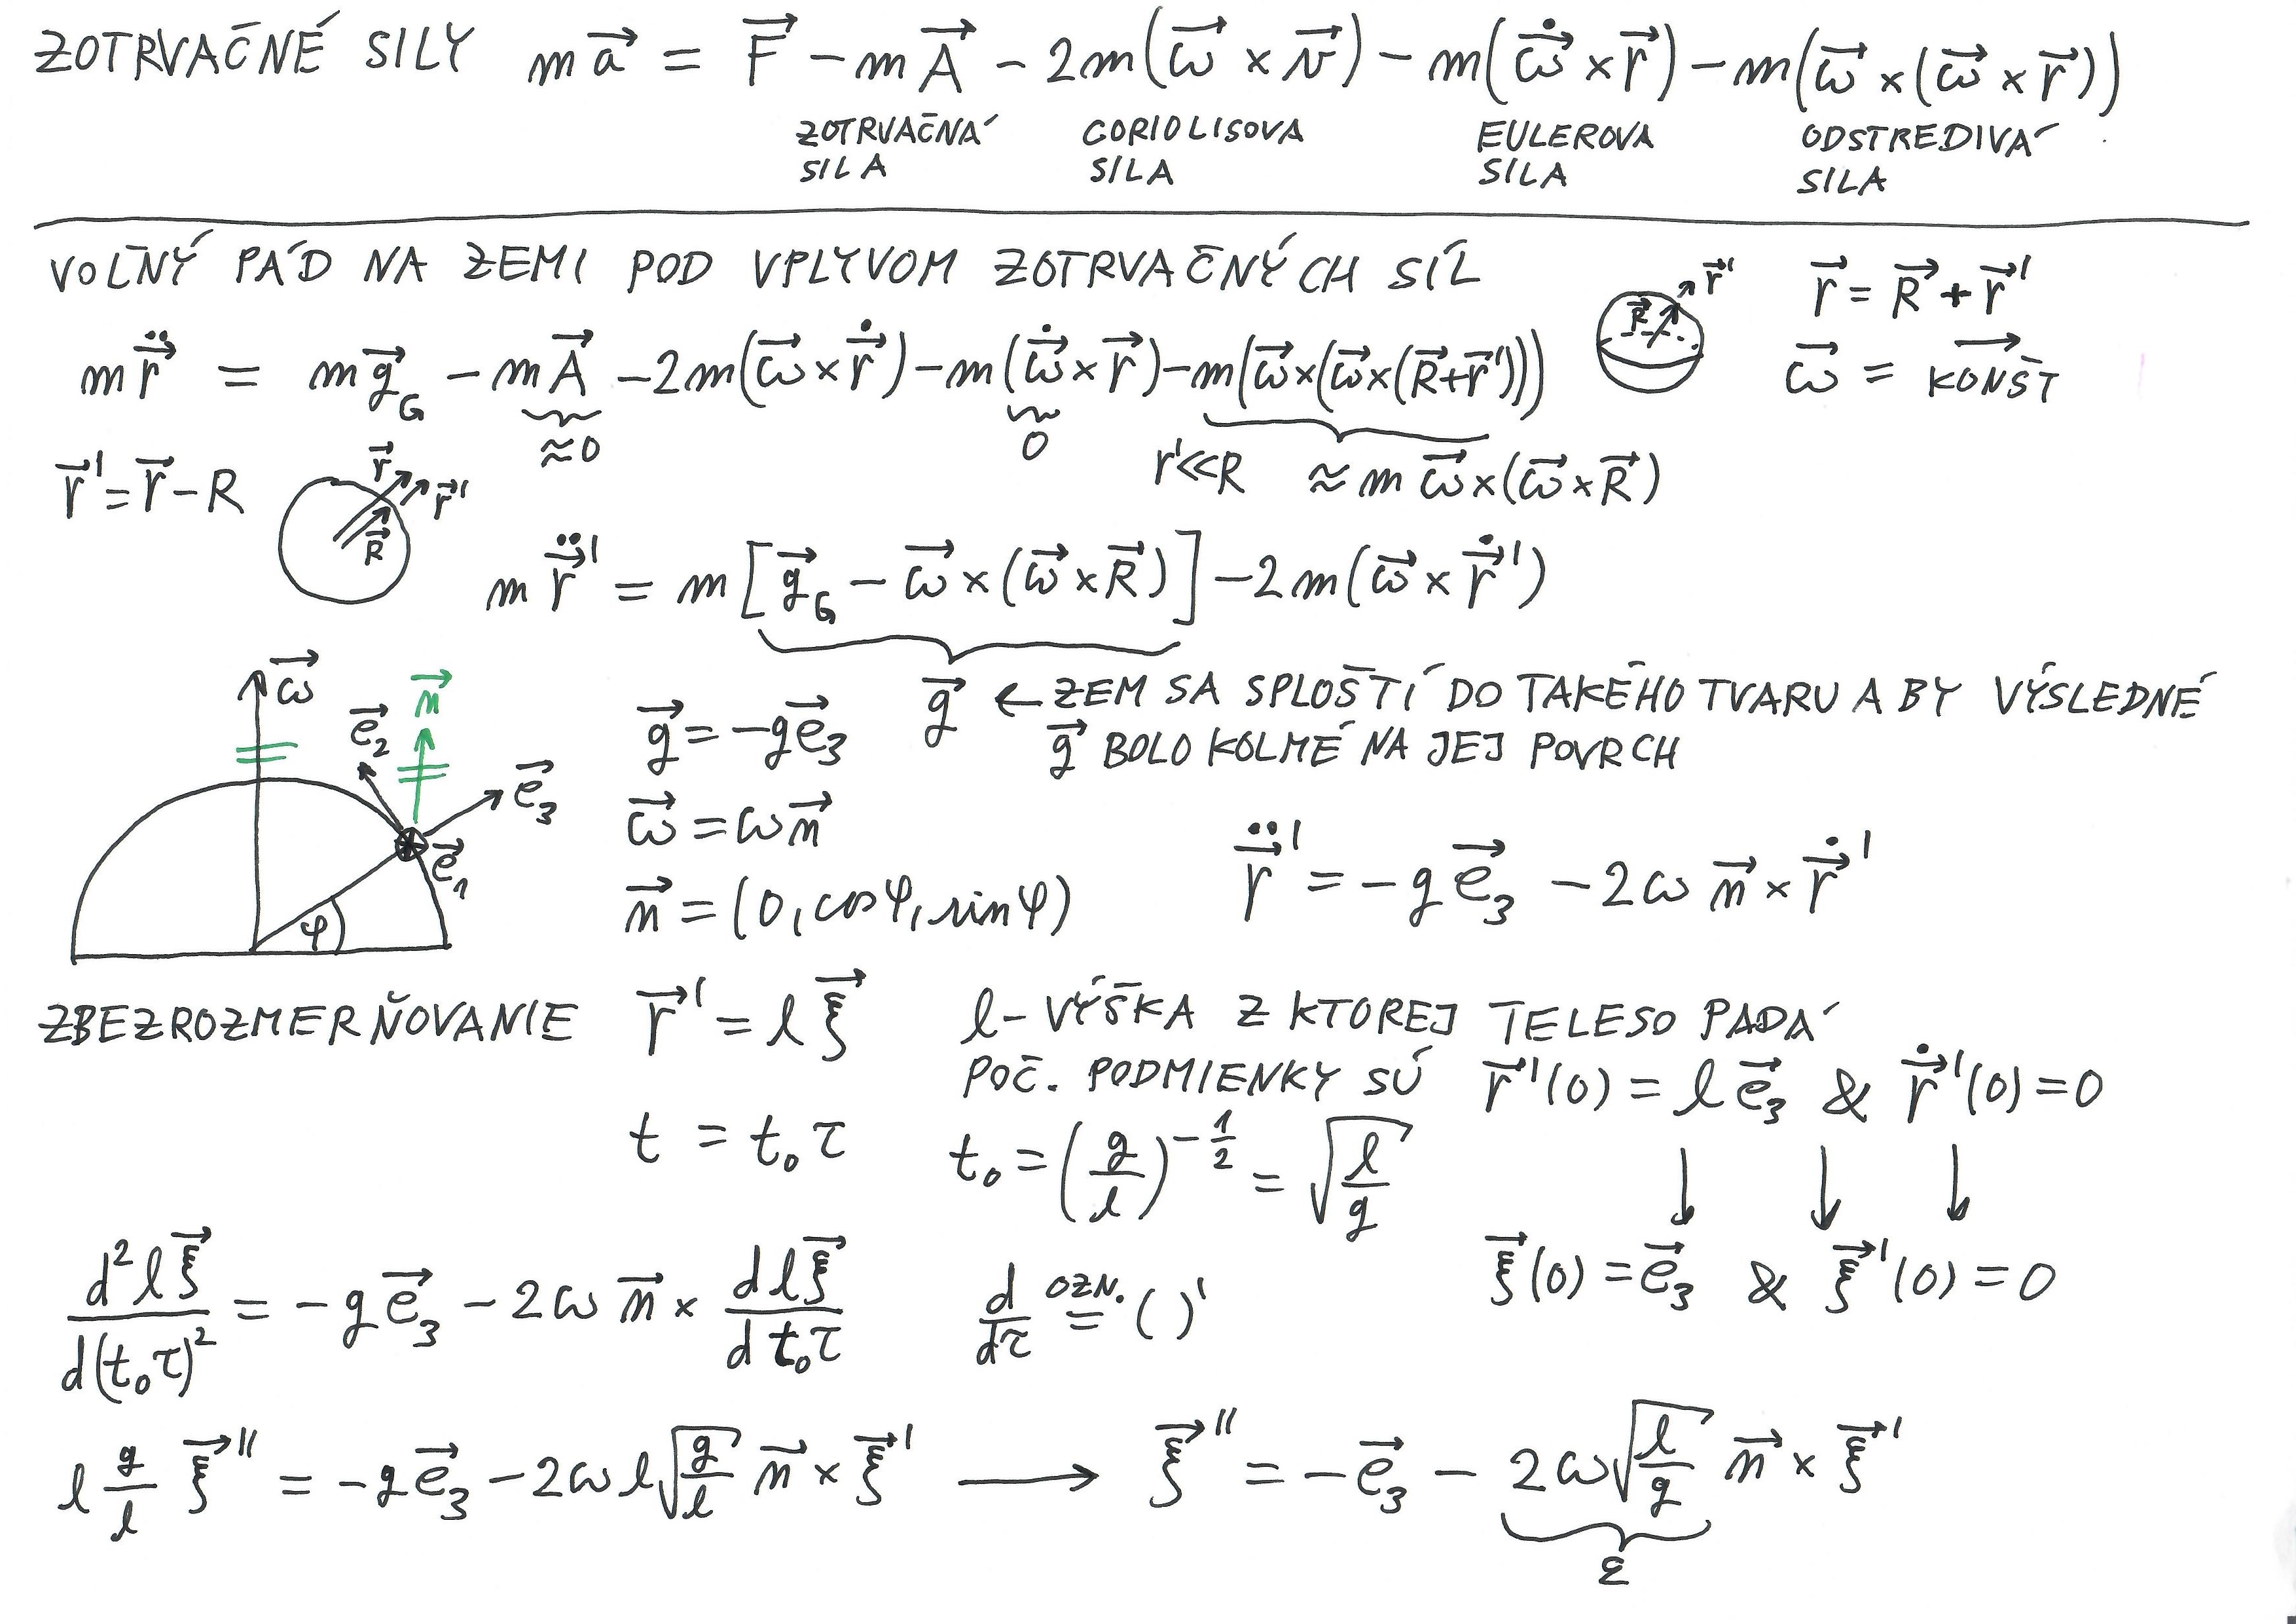 ZOTRVAČNÉ SILY m\vec{a} = \vec{F} - m\vec{A} - 2m(\vec{ω} × \vec{v}) - m(\dot{\vec{ω}} × \vec{r}) - m(\vec{ω} × (\vec{ω} × \vec{r}))
ZOTRVAČNÁ SILA CORIOLISOVA SILA EULEROVA SILA ODSTREDIVÁ SILA
VOĽNÝ PÁD NA ZEMI POD VPLYVOM ZOTRVAČNÝCH SÍL
\vec{r}' \vec{R} \vec{r} = \vec{R} + \vec{r}'
m\ddot{\vec{r}} = m\vec{g}_G - m\vec{A} - 2m(\vec{ω} × \dot{\vec{r}}) - m(\dot{\vec{ω}} × \vec{r}) - m(\vec{ω} × (\vec{ω} × (\vec{R} + \vec{r}')))
\vec{ω} = \vec{KONŠT}
≈0 0 r'≪R ≈ m\vec{ω} × (\vec{ω} × \vec{R})
\vec{r}' = \vec{r} - R \vec{r} \vec{r}' \vec{R}
m\ddot{\vec{r}}' = m[\vec{g}_G - \vec{ω} × (\vec{ω} × \vec{R})] - 2m(\vec{ω} × \dot{\vec{r}}')
\vec{ω} \vec{e}_2 \vec{n} \vec{e}_3 \vec{e}_1 φ
\vec{g} = -g\vec{e}_3 \vec{g} ← ZEM SA SPLOŠTÍ DO TAKÉHO TVARU A BY VÝSLEDNÉ
\vec{g} BOLO KOLMÉ NA JEJ POVRCH
\vec{ω} = ω\vec{n}
\vec{n} = (0, cosφ, sinφ) \ddot{\vec{r}}' = -g\vec{e}_3 - 2ω\vec{n} × \dot{\vec{r}}'
ZBEZROZMERŇOVANIE \vec{r}' = l\vec{ξ} l - VÝŠKA Z KTOREJ TELESO PADÁ
POČ. PODMIENKY SÚ \vec{r}'(0) = l\vec{e}_3 & \dot{\vec{r}}'(0) = 0
t = t_0 τ t_0 = (g/l)^{-1/2} = √(l/g) ↓ ↓ ↓
\vec{ξ}(0) = \vec{e}_3 & \vec{ξ}'(0) = 0
d^2 l\vec{ξ} / d(t_0 τ)^2 = -g\vec{e}_3 - 2ω\vec{n} × dl\vec{ξ} / dt_0 τ d/dτ OZN. = ( )'
l g/l \vec{ξ}'' = -g\vec{e}_3 - 2ωl√(g/l) \vec{n} × \vec{ξ}' → \vec{ξ}'' = -\vec{e}_3 - 2ω√(l/g) \vec{n} × \vec{ξ}'
ε